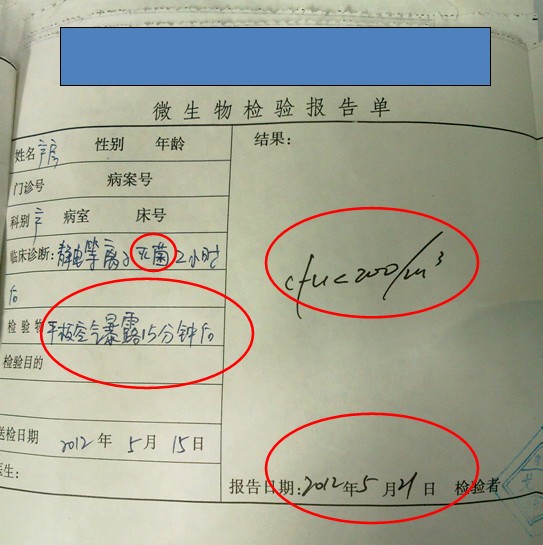 微生物检验报告单
姓名 产房 性别 年龄
门诊号 病案号
科别 产 病室 床号
临床诊断：静电等离子灭菌2小时
后
检验物 平板空气暴露15分钟后
检验目的
送检日期 2012年5月15日
医生：
结果：
cfu<200/m³
报告日期：2012年5月21日 检验者